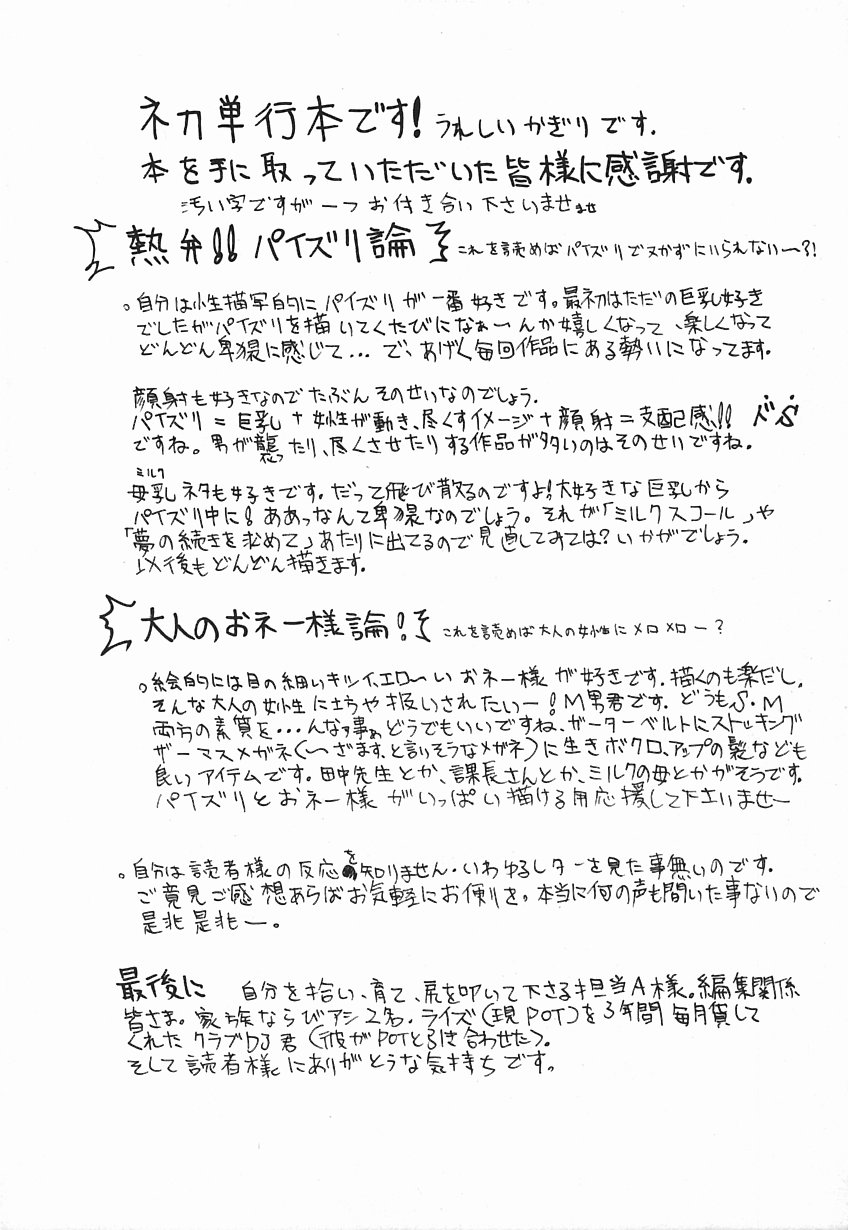 ネカ単行本です! うれしいかぎりです.
本を手に取っていただいた皆様に感謝です.
汚い字ですが一つお付き合い下さいませませ
熱弁!! パイズリ論 これを読めばパイズリでヌかずにいられないー?!
。自分は性描写的にパイズリが一番好きです。最初はただの巨乳好き
でしたがパイズリを描いてくたびになぁーんか嬉しくなって、楽しくなって
どんどん卑猥に感じて...で、あげく毎回作品にある勢いになってます.
顔射も好きなのでたぶんそのせいなのでしょう.
パイズリ=巨乳+女性が動き、尽くすイメージ+顔射=支配感!! ドS
ですね。男が襲ったり、尽くさせたりする作品が多いのはそのせいですね.
ミルク
母乳ネタも好きです。だって飛び散るのですよ!大好きな巨乳から
パイズリ中に!ああっなんて卑猥なのでしょう。それが「ミルクスコール」や
「夢の続きを求めて」あたりに出てるので見直してみては?いかがでしょう.
以後もどんどん描きます.
大人のおネー様論! これを読めば大人の女性にメロメロー?
。絵的には目の細いキツイ、エロ〜いおネー様が好きです.描くのも楽だし,
そんな大人の女性に土ちや扱いされたいー!M男君です.どうもS・M
両方の素質を...んな事ぁどうでもいいですね、ガーターベルトにストッキング
ザーマスメガネ(〜ざます、と言いそうなメガネ)に生きボクロ、アップの髪なども
良いアイテムです.田中先生とか、課長さんとか、ミルクの母とかがそうです.
パイズリとおネー様がいっぱい描ける用応援して下さいませー
。自分は読者様の反応を知りません.いわゆるレターを見た事無いのです.
ご意見ご感想あらばお気軽にお便りを,本当に何の声も聞いた事ないので
是非是非ー。
最後に 自分を拾い、育て、尻を叩いて下さる担当A様。編集関係
皆さま。家族ならびアシ2名.ライズ(現POT)を3年間毎月貸して
くれたクラブDJ君(彼がPOTと引き合わせた).
そして読者様にありがとうな気持ちです。